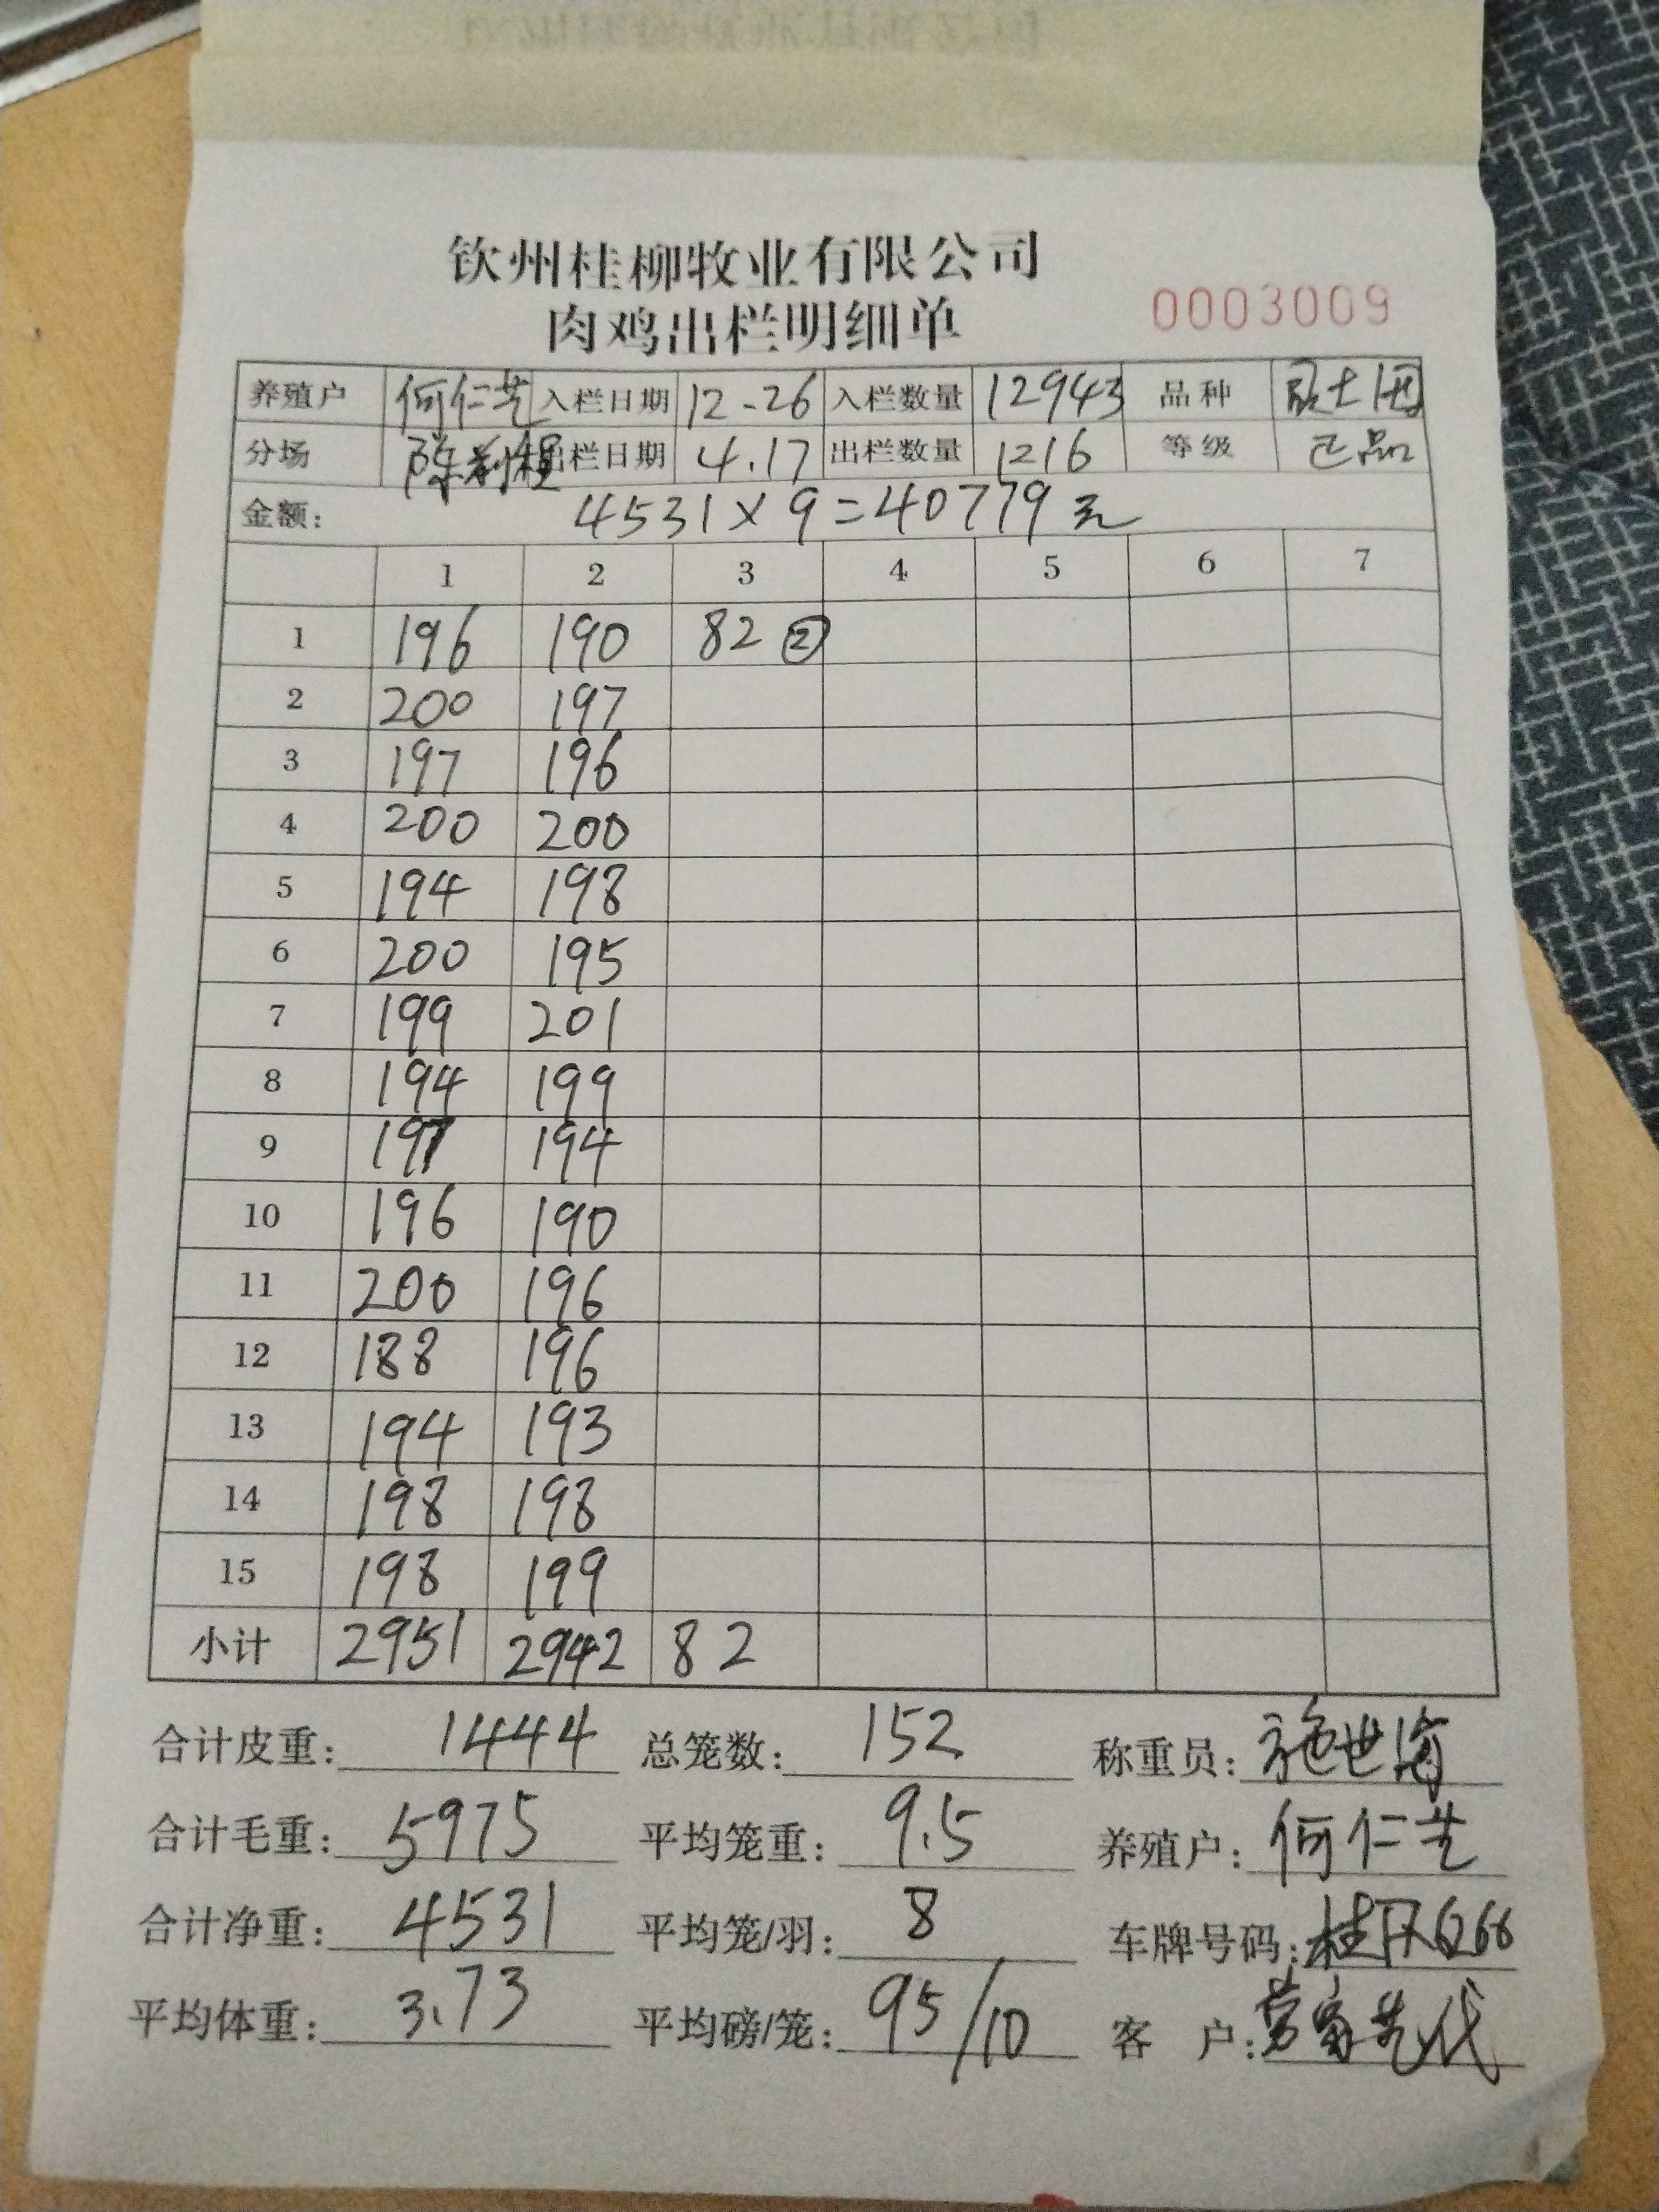 钦州桂柳牧业有限公司
肉鸡出栏明细单 0003009
养殖户 何仁芝 入栏日期 12-26 入栏数量 12943 品种
分场 出栏日期 4.17 出栏数量 1216 等级 正品
金额: 4531×9=40779元
1 2 3 4 5 6 7
1 196 190 82 ②
2 200 197
3 197 196
4 200 200
5 194 198
6 200 195
7 199 201
8 194 199
9 197 194
10 196 190
11 200 196
12 188 196
13 194 193
14 198 198
15 198 199
小计 2951 2942 82
合计皮重: 1444 总笼数: 152 称重员: 施世海
合计毛重: 5975 平均笼重: 9.5 养殖户: 何仁芝
合计净重: 4531 平均笼/羽: 8 车牌号码:
平均体重: 3.73 平均磅/笼: 95/10 客户: